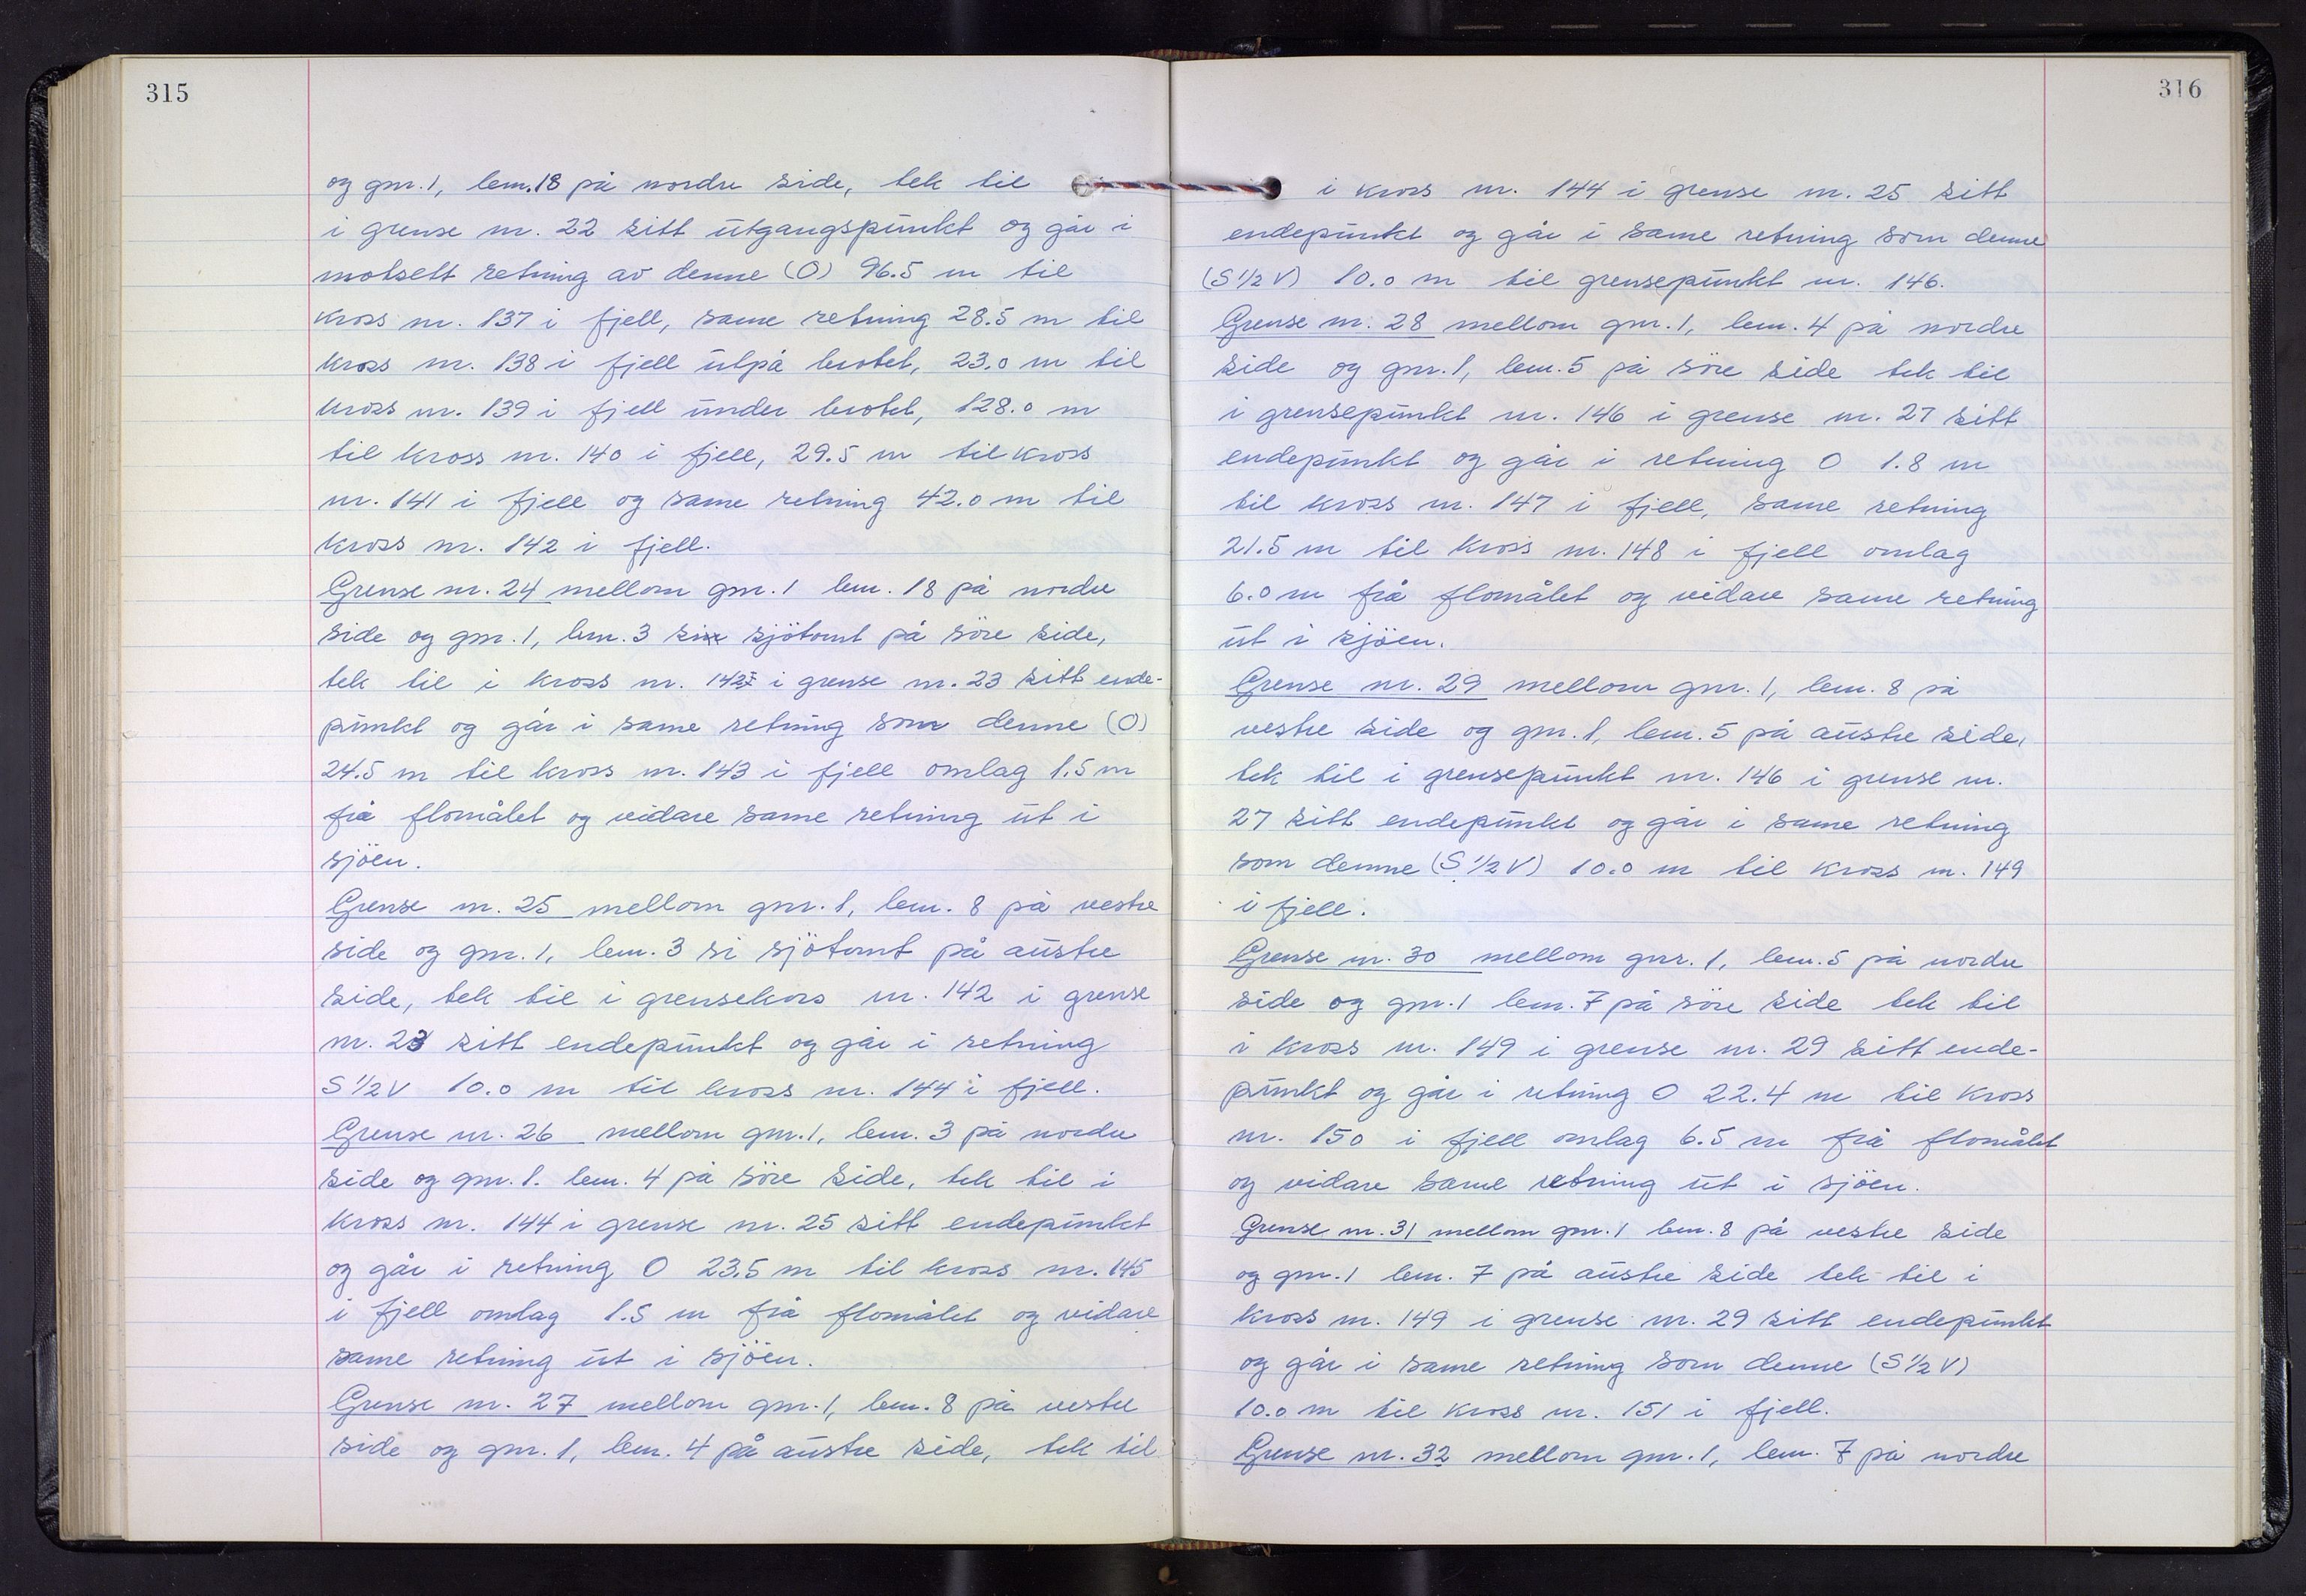 315
og gnr. 1, bnr. 18 på nordre side, tek til
i grense nr. 22 sitt utgangspunkt og går i
motsett retning av denne (O) 96.5 m til
kross nr. 137 i fjell, same retning 28.5 m til
kross nr. 138 i fjell utpå brotet, 23.0 m til
kross nr. 139 i fjell under brotet, 128.0 m
til kross nr. 140 i fjell, 29.5 m til kross
nr. 141 i fjell og same retning 42.0 m til
kross nr. 142 i fjell.
Grense nr. 24 mellom gnr. 1 bnr. 18 på nordre
side og gnr. 1, bnr. 3 si sjötomt på söre side,
tek til i kross nr. 142 i grense nr. 23 sitt ende-
punkt og går i same retning som denne (O)
24.5 m til kross nr. 143 i fjell omlag 1.5 m
frå flomålet og vidare same retning ut i
sjöen.
Grense nr. 25 mellom gnr. 1, bnr. 8 på vestre
side og gnr. 1, bnr. 3 si sjötomt på austre
side, tek til i grensekors nr. 142 i grense
nr. 23 sitt endepunkt og går i retning
S 1/2 V 10.0 m til kross nr. 144 i fjell.
Grense nr. 26 mellom gnr. 1, bnr. 3 på nordre
side og gnr. 1. bnr. 4 på söre side, tek til i
kross nr. 144 i grense nr. 25 sitt endepunkt
og går i retning O 23.5 m til kross nr. 145
i fjell omlag 1.5 m frå flomålet og vidare
same retning ut i sjöen.
Grense nr. 27 mellom gnr. 1, bnr. 8 på vestre
side og gnr. 1, bnr. 4 på austre side, tek til
316
i kross nr. 144 i grense nr. 25 sitt
endepunkt og går i same retning som denne
(S 1/2 V) 10.0 m til grensepunkt nr. 146.
Grense nr. 28 mellom gnr. 1, bnr. 4 på nordre
side og gnr. 1, bnr. 5 på söre side tek til
i grensepunkt nr. 146 i grense nr. 27 sitt
endepunkt og går i retning O 1.8 m
til kross nr. 147 i fjell, same retning
21.5 m til kross nr. 148 i fjell omlag
6.0 m frå flomålet og vidare same retning
ut i sjöen.
Grense nr. 29 mellom gnr. 1, bnr. 8 på
vestre side og gnr. 1, bnr. 5 på austre side,
tek til i grensepunkt nr. 146 i grense nr.
27 sitt endepunkt og går i same retning
som denne (S 1/2 V) 10.0 m til kross nr. 149
i fjell.
Grense nr. 30 mellom gnr. 1, bnr. 5 på nordre
side og gnr. 1 bnr. 7 på söre side tek til
i kross nr. 149 i grense nr. 29 sitt ende-
punkt og går i retning O 22.4 m til kross
nr. 150 i fjell omlag 6.5 m frå flomålet
og vidare same retning ut i sjöen.
Grense nr. 31 mellom gnr. 1 bnr. 8 på vestre side
og gnr. 1 bnr. 7 på austre side tek til i
kross nr. 149 i grense nr. 29 sitt endepunkt
og går i same retning som denne (S 1/2 V)
10.0 m til kross nr. 151 i fjell.
Grense nr. 32 mellom gnr. 1, bnr. 7 på nordre